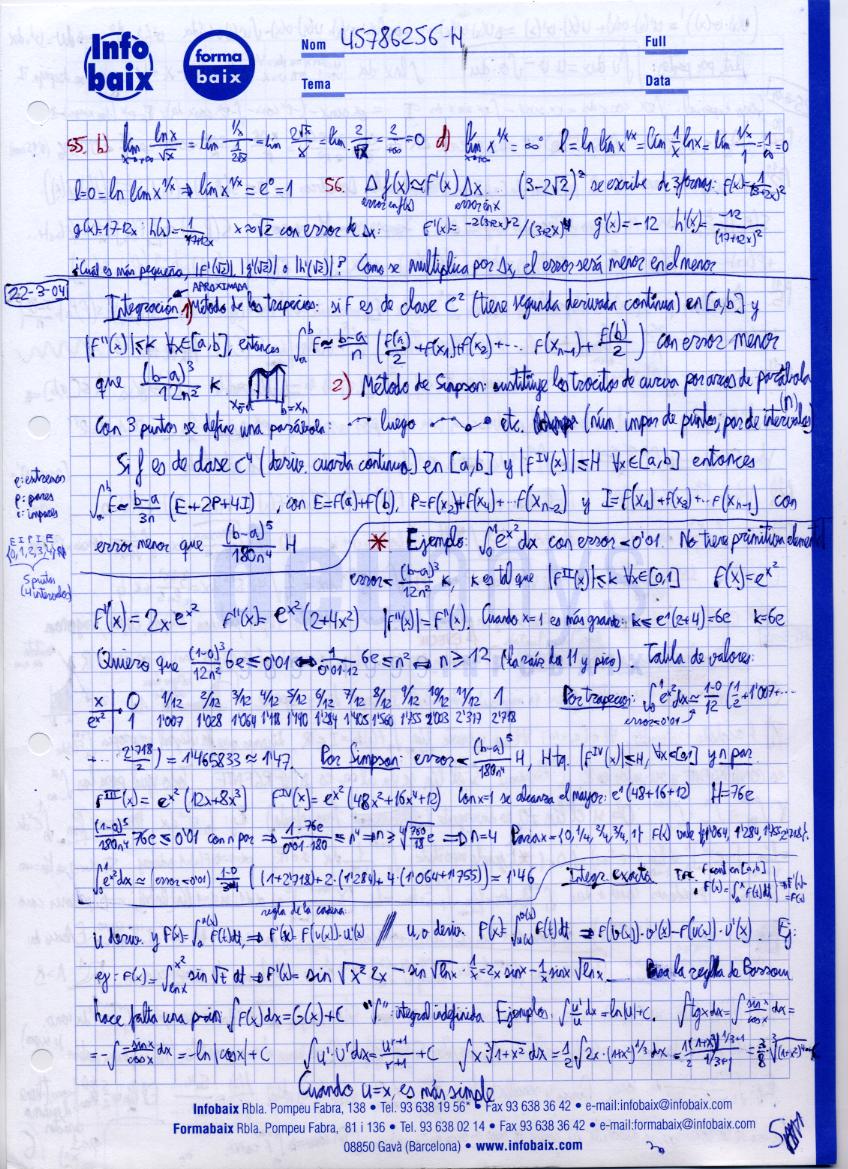 Info baix
forma baix
Nom 45786256-H Full
Tema Data
55. b) lím x→+∞ lnx/√x = lím (1/x)/(1/2√x) = lím 2√x/x = lím 2/√x = 2/+∞ = 0 d) lím x→+∞ x^(1/x) = ∞⁰ l = ln lím x^(1/x) = lím 1/x lnx = lím (1/x)/1 = 1/∞ = 0
l=0=ln lím x^(1/x) ⇒ lím x^(1/x) = e⁰ = 1 56. Δf(x) ≈ f'(x) Δx (3-2√2)² se escribe de 3 formas: f(x)=
error en f(x) error en x
g(x)=17-12x; h(x)=1/(17+12x) x≈√2 con error de Δx: g'(x)=-12 h'(x)=-12/(17+12x)²
¿Cuál es más pequeña, |f'(√2)|, |g'(√2)| o |h'(√2)|? Como se multiplica por Δx, el error será menor en el menor
22-3-04
APROXIMADA
Integración 1) Método de los trapecios: si F es de clase C² (tiene segunda derivada continua) en [a,b] y
|F''(x)|≤k ∀x∈[a,b], entonces ∫ₐᵇ F ≈ (b-a)/n (F(a)/2 + F(x₁)+F(x₂)+... F(xₙ₋₁)+ F(b)/2) con error menor
que (b-a)³/12n² K x₀=a b=xₙ 2) Método de Simpson: sustituye los trocitos de curva por arcos de parábola
Con 3 puntos se define una parábola: luego etc. (núm. impar de puntos, par de intervalos) (n)
Si f es de clase C⁴ (deriv. cuarta continua) en [a,b] y |F^IV(x)|≤H ∀x∈[a,b] entonces
e: extremos
p: pares
i: impares
∫ₐᵇ F ≈ (b-a)/3n (E+2P+4I), con E=F(a)+F(b), P=F(x₂)+F(x₄)+...F(xₙ₋₂) y I=F(x₁)+F(x₃)+...F(xₙ₋₁) con
E I P I E
0,1,2,3,4
5 puntos
(4 intervalos)
error menor que (b-a)⁵/180n⁴ H * Ejemplo: ∫₀¹ e^(x²) dx con error <0'01. No tiene primitiva elemental
error < (b-a)³/12n² K, K es tal que |F^II(x)|≤k ∀x∈[0,1] F(x)=e^(x²)
F'(x)=2x·e^(x²) F''(x)=e^(x²)(2+4x²) |F''(x)|=F''(x). Cuando x=1 es más grande: k≤e¹(2+4)=6e k=6e
Quiero que (1-0)³/12n² 6e ≤0'01 ⇔ 1/(0'01·12) 6e≤n² ⇔ n≥12 (la raíz da 11 y pico). Tabla de valores:
x 0 1/12 2/12 3/12 4/12 5/12 6/12 7/12 8/12 9/12 10/12 11/12 1 Por trapecios: ∫₀¹ e^(x²) dx ≈ (1-0)/12 (1/2+1'007+...
e^(x²) 1 1'007 1'028 1'064 1'118 1'190 1'284 1'405 1'560 1'755 2'003 2'317 2'718 error<0'01
... 2'718/2) = 1'465833≈1'47. Por Simpson: error < (b-a)⁵/180n⁴ H, H tq. |F^IV(x)|≤H, ∀x∈[0,1] y n par
F^III(x)=e^(x²)(12x+8x³) F^IV(x)=e^(x²)(48x²+16x⁴+12) Con x=1 se alcanza el mayor: e¹(48+16+12) H=76e
(1-0)⁵/180n⁴ 76e≤0'01 con n par ⇒ 1·76e/(0'01·180) ≤n⁴ ⇒ n≥ ⇒ n=4 Para x={0,1/4,2/4,3/4,1} F(x) vale {1'064, 1'284, 1'755, 2'718}
∫₀¹ e^(x²) dx ≈ (error<0'01) (1-0)/3·4 ((1+2'718)+2·(1'284)+4·(1'064+1'755)) = 1'46 Integr. exacta TFC f cont en [a,b] F(x)=∫ₐˣ f(t)dt F'(x)=f(x)
regla de la cadena
u deriv. y F(x)=∫ₐ^u(x) f(t)dt ⇒ F'(x)=f(u(x))·u'(x) // u, v deriv. F(x)=∫_u(x)^v(x) f(t)dt ⇒ f(v(x))·v'(x)-f(u(x))·u'(x). Ej:
eg: F(x)=∫_lnx^x² sin√t dt ⇒ F'(x)=sin√x² 2x - sin√lnx·1/x = 2x sinx - 1/x sinx √lnx. Para la regla de Barrow
hace falta una prim ∫f(x)dx=G(x)+C "∫" integral indefinida. Ejemplos: ∫u'/u dx=ln|u|+C. ∫tgx dx=∫ sinx/cosx dx=
=-∫ -sinx/cosx dx=-ln|cosx|+C ∫u'·uʳdx= uʳ⁺¹/(r+1) + C ∫x ∛(1+x²) dx = 1/2 ∫2x·(1+x²)^(1/3) dx = 1/2 (1+x²)^(1/3+1)/(1/3+1) = 3/8 ∛(1+x²)⁴+C
Cuando u=x, es más simple
Infobaix Rbla. Pompeu Fabra, 138 • Tel. 93 638 19 56 • Fax 93 638 36 42 • e-mail:infobaix@infobaix.com
Formabaix Rbla. Pompeu Fabra, 81 i 136 • Tel. 93 638 02 14 • Fax 93 638 36 42 • e-mail:formabaix@infobaix.com
08850 Gavà (Barcelona) • www.infobaix.com